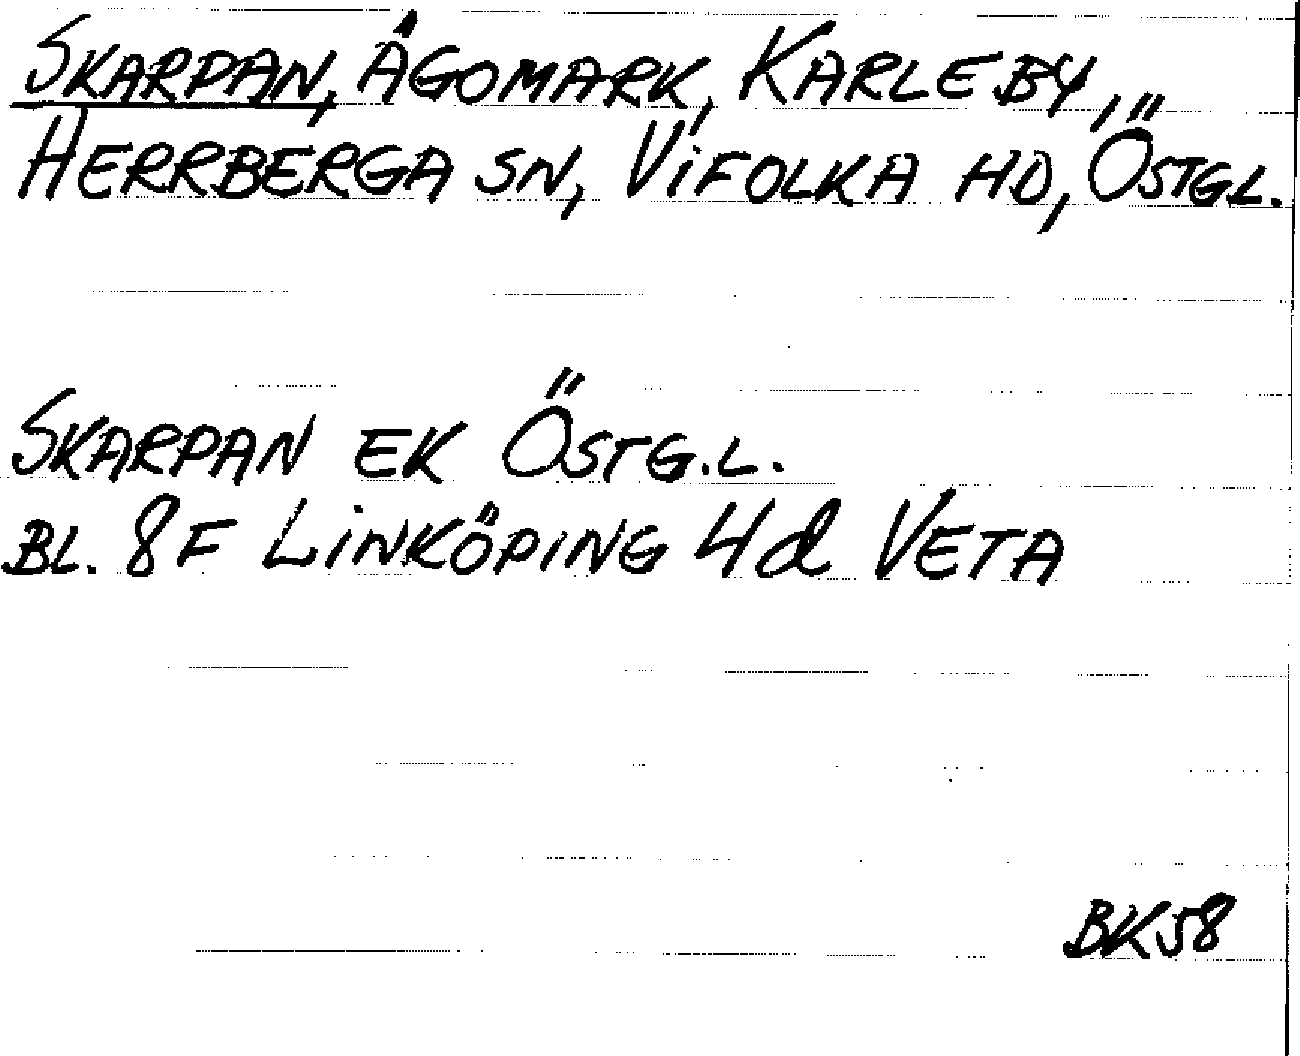 SKARPAN, ÄGOMARK, KARLEBY,
HERRBERGA SN, VIFOLKA HD, ÖSTGL.
SKARPAN EK ÖSTG.L.
BL. 8F LINKÖPING 4d VETA
BK58